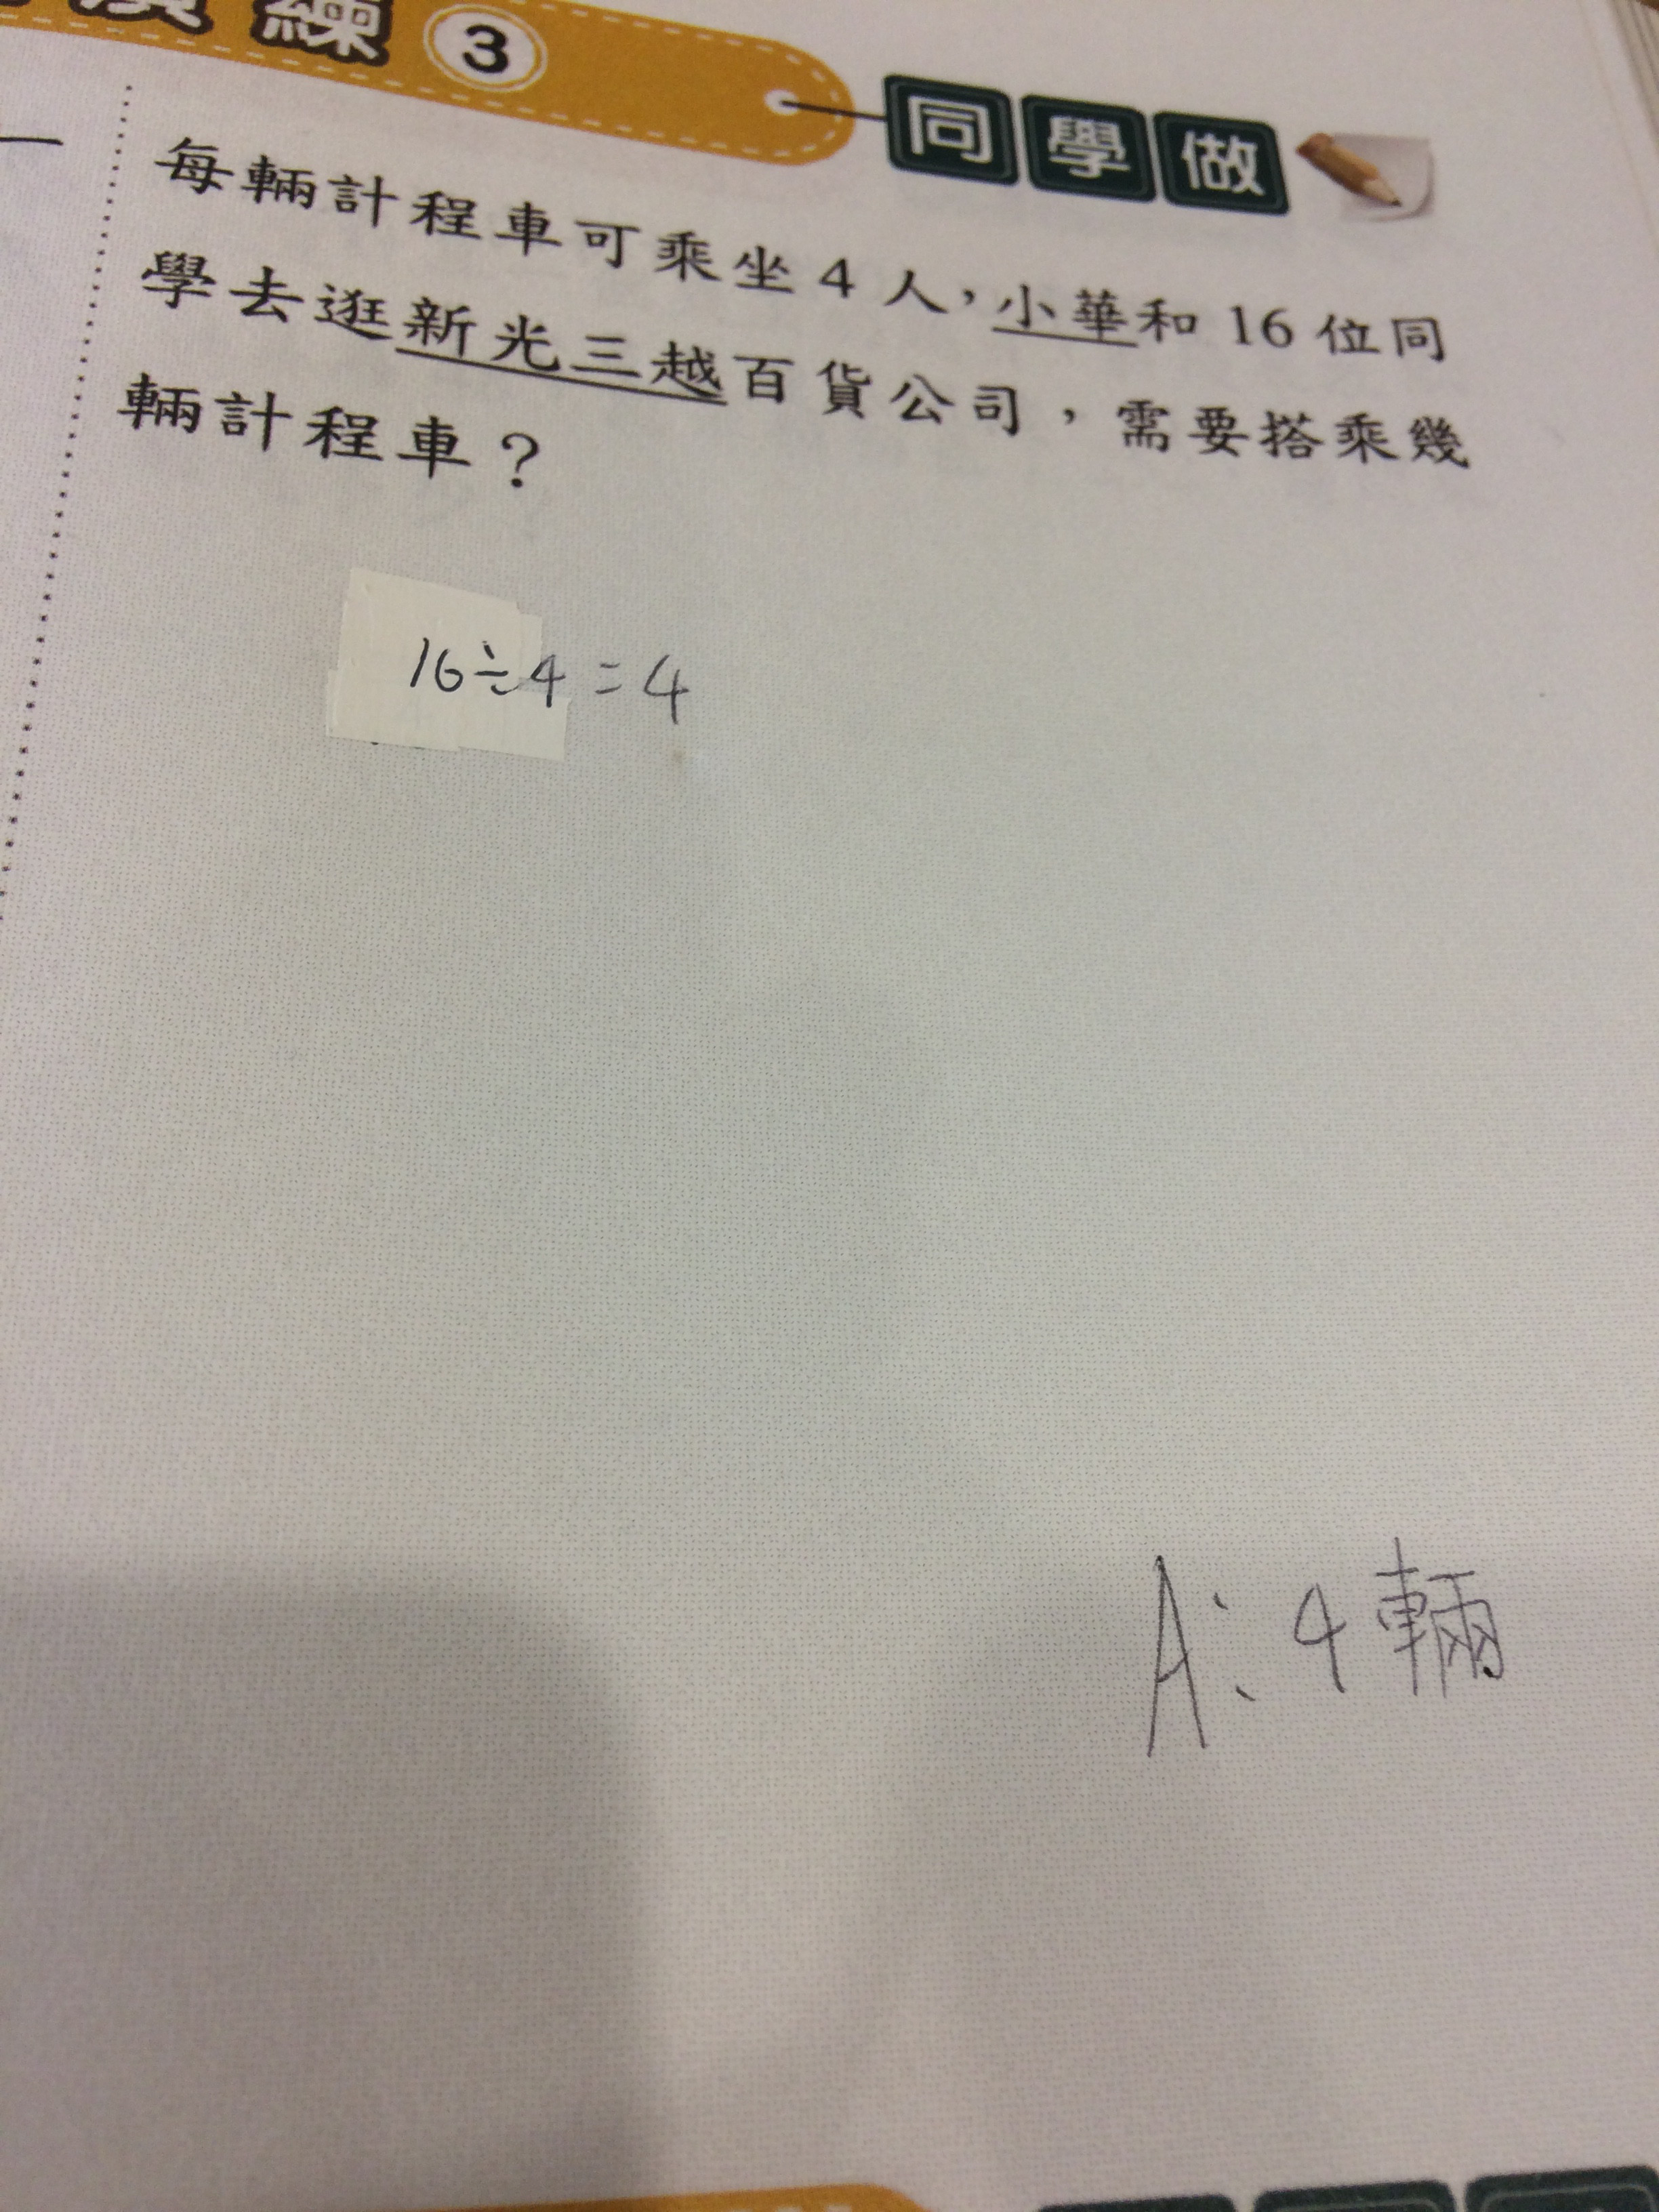 練 3 同學做
每輛計程車可乘坐 4 人，小華和 16 位同
學去逛新光三越百貨公司，需要搭乘幾
輛計程車？
16÷4=4
A：4輛